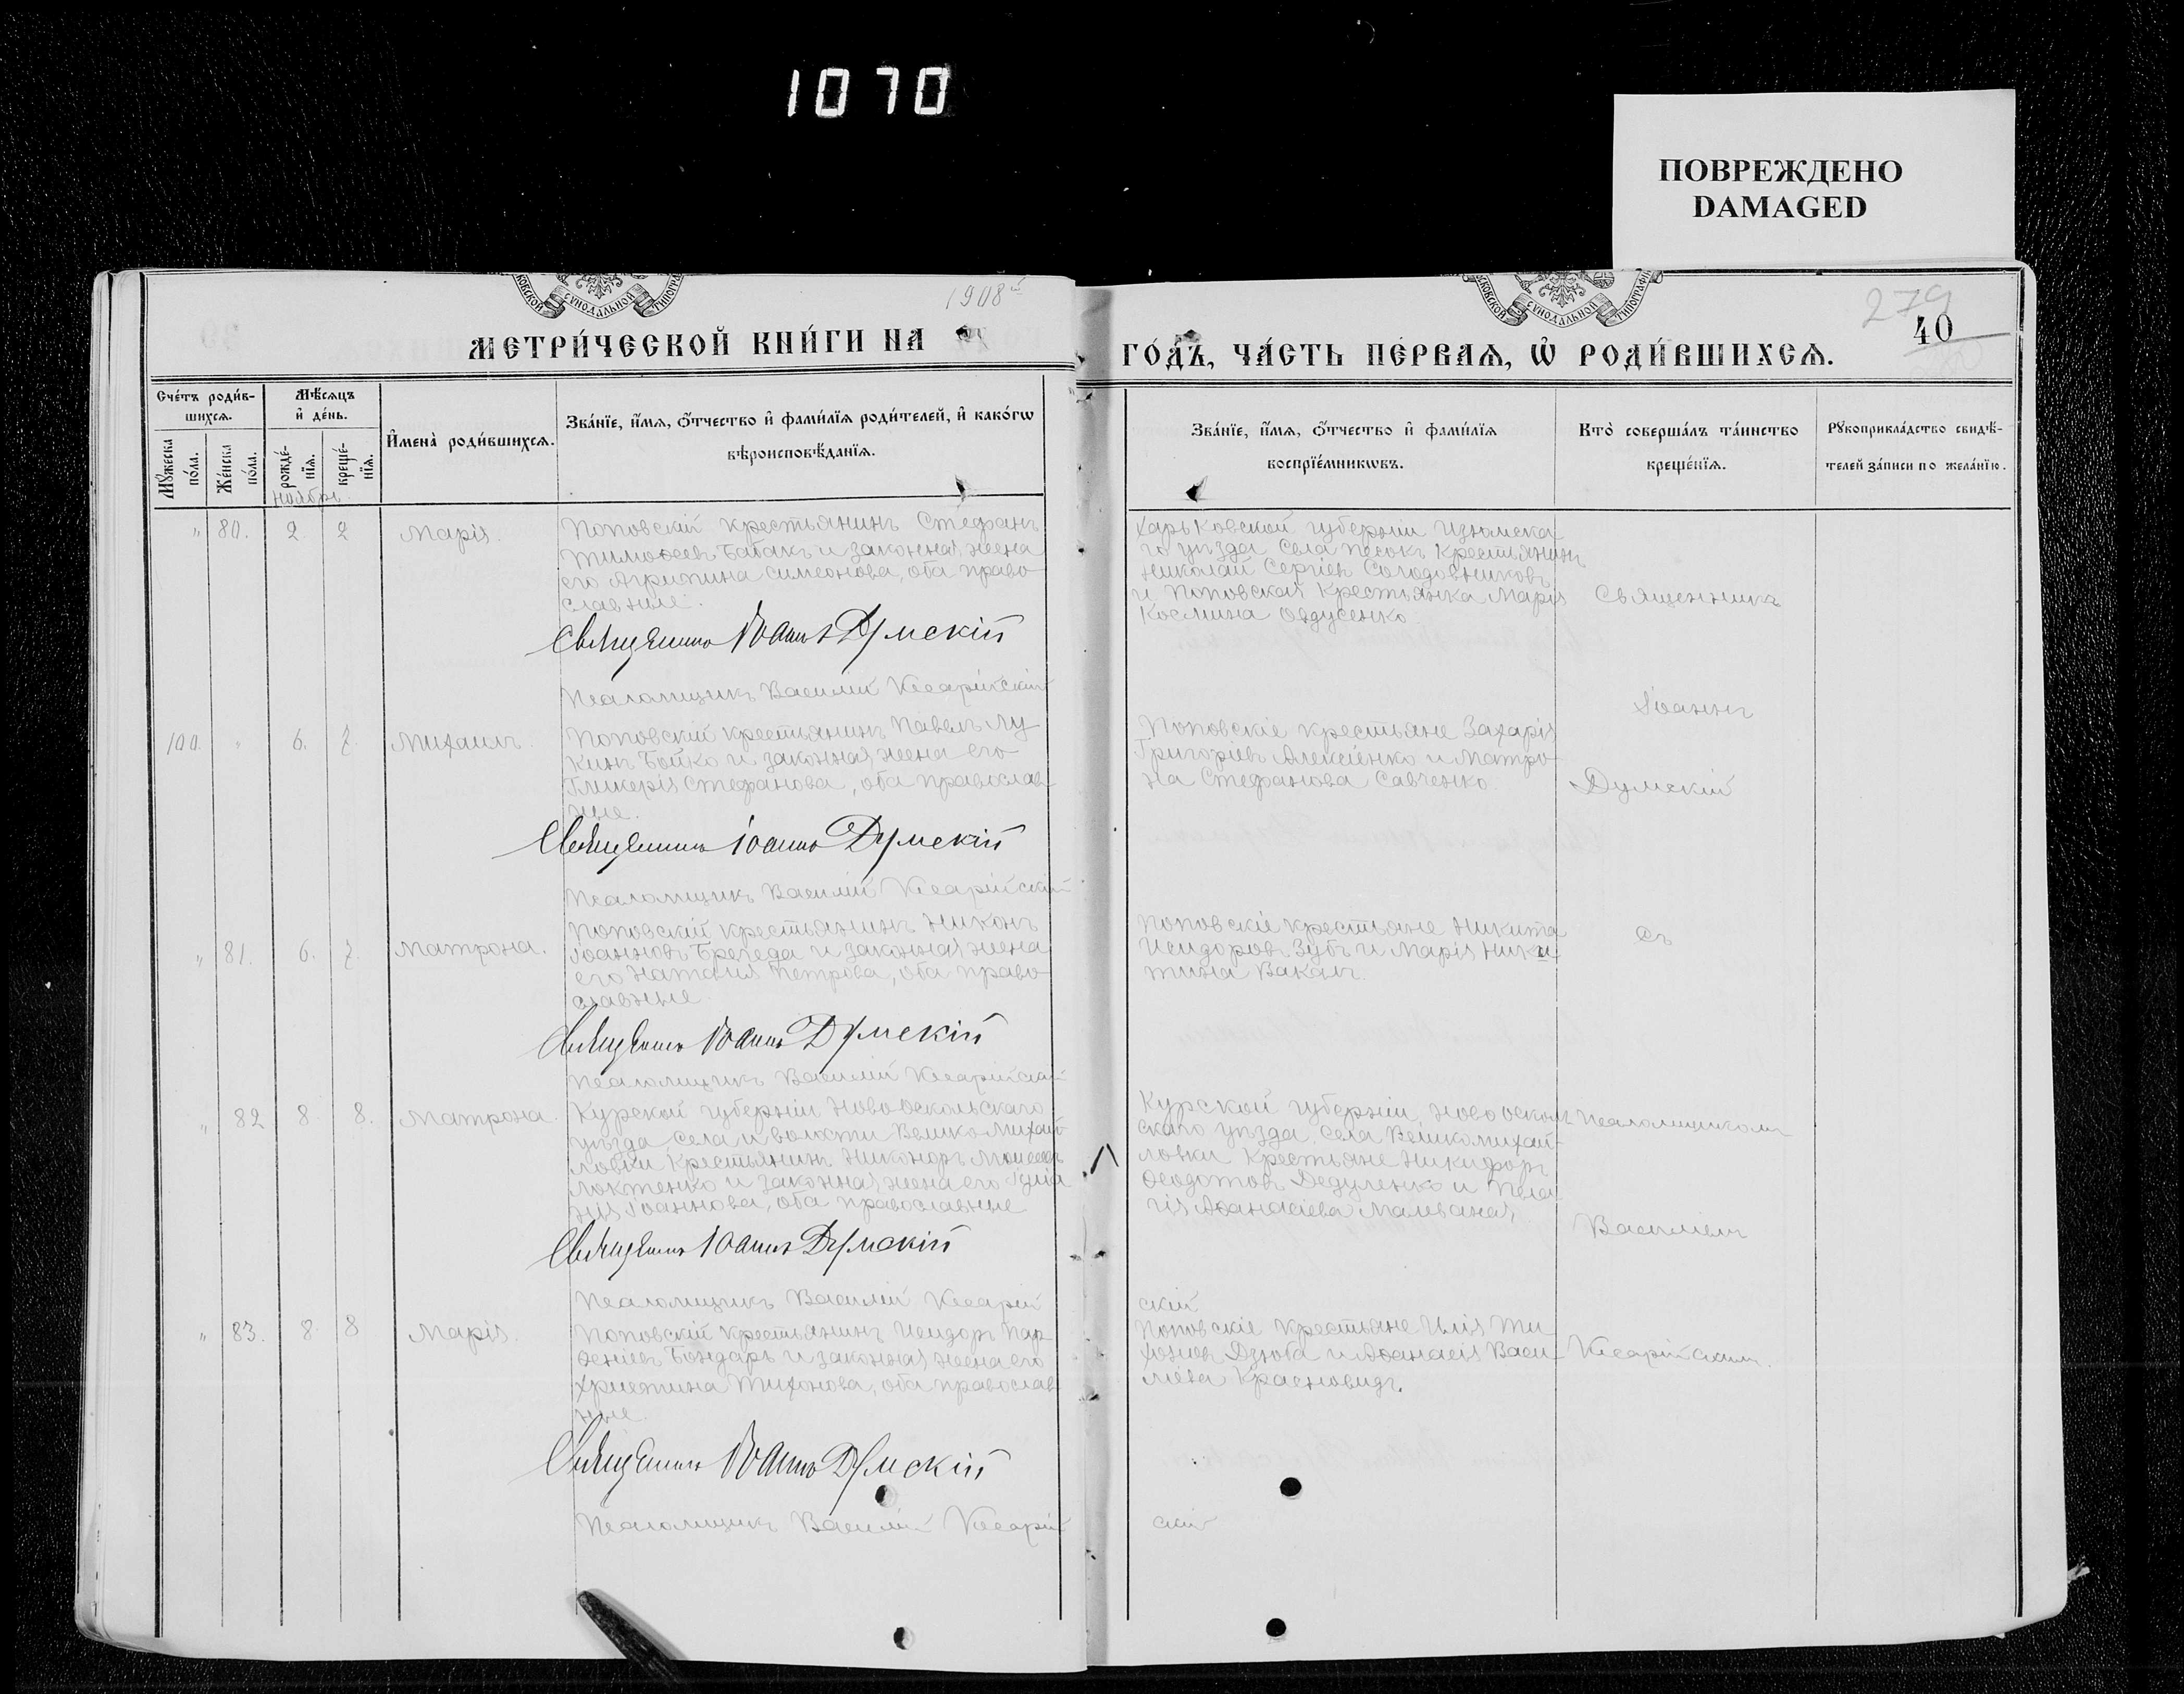 1070
ПОВРЕЖДЕНО
DAMAGED
1908
279
40
МЕТРИ́ЧЕСКОЙ КНИ́ГИ НА
ГО́ДЪ, ЧА́СТЬ ПЕ́РВАѦ, Ѿ РОДИ́ВШИХСѦ.
Сче́тъ роди́в-
шихсѧ.
Мѣ́сѧцъ
и҆ де́нь.
И҆мена̀ роди́вшихсѧ.
Зва́нїе, и҆́мѧ, ѻ҆́тчество и҆ фами́лїѧ роди́телей, и҆ како́гѡ
вѣроисповѣ́данїѧ.
Мꙋ́жеска
по́ла.
Же́нска
по́ла.
рожде́-
нїѧ.
креще́-
нїѧ.
Зва́нїе, и҆́мѧ, ѻ҆́тчество и҆ фами́лїѧ
воспрїе́мникѡвъ.
Кто̀ соверша́лъ та́инство
креще́нїѧ.
Рꙋкоприкла́дство свидѣ́-
телей за́писи по жела́нїю.
ноябрь
" 80. 2. 2 Марія.
Поповскій крестьянинъ Стефанъ
Тимоѳеевъ Бабакъ и законная жена
его Агрипина Симеонова, оба право-
славные.
Священникъ Іоаннъ Думскій
Псаломщикъ Василій Кесарійскій
Харьковской губерніи Изюмска-
го уѣзда села Песокъ крестьянинъ
Николай Сергіевъ Солодовниковъ
и Поповская крестьянка Марія
Космина Овдусенко.
Священникъ
100. " 6. 7. Михаилъ.
Поповскій крестьянинъ Павелъ Лу-
кинъ Бойко и законная жена его
Гликерія Стефанова, оба православ-
ные.
Священникъ Іоаннъ Думскій
Псаломщикъ Василій Кесарійскій
Поповскіе крестьяне Захарія
Григоріевъ Алексіенко и Матро-
на Стефанова Савченко.
Іоаннъ
Думскій
" 81. 6. 7. Матрона.
Поповскій крестьянинъ Никонъ
Іоанновъ Брегеда и законная жена
его Наталія Петрова, оба право-
славные
Священникъ Іоаннъ Думскій
Псаломщикъ Василій Кесарійскій
Поповскіе крестьяне Никита
Исидоровъ Зубъ и Марія Ники-
тина Вакалъ.
съ
" 82 8. 8. Матрона.
Курской губерніи Новооскольскаго
уѣзда села и волости Великомихай-
ловки крестьянинъ Никоноръ Моисеевъ
Локтенко и законная жена его Іулiа-
нія Іоаннова, оба православные
Священникъ Іоаннъ Думскій
Псаломщикъ Василій Кесарій
скій
Курской губерніи, Новоосколь-
скаго уѣзда, села Великомихай-
ловки крестьяне Никифоръ
Ѳеодотовъ Дедуленко и Пела-
гія Аѳанасіева Малеваная,
псаломщикомъ
Василіемъ
" 83. 8. 8 Марія.
Поповскій крестьянинъ Исидоръ Пар-
ѳеніевъ Бондарь и законная жена его
Христина Тихонова, оба православ-
ные.
Священникъ Іоаннъ Думскій
Псаломщикъ Василій Кесарій
скій
Поповскіе крестьяне Илія Ти-
хоновъ Дзюба и Аѳанасія Васи-
ліева Красновидъ.
Кесарійскимъ.